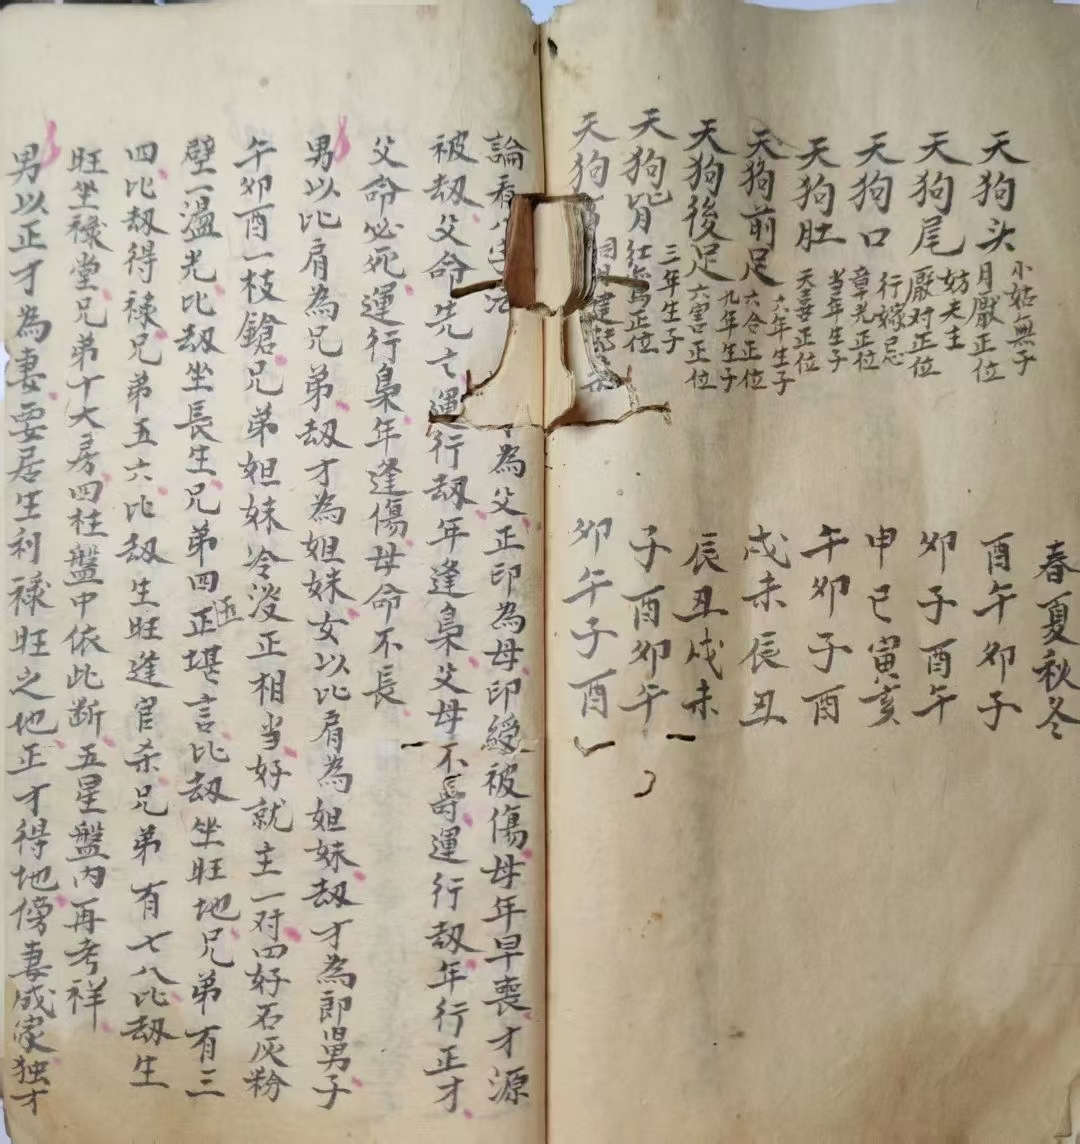 春夏秋冬
天狗头 小姑無子 月厭正位 酉午卯子
天狗尾 妨夫主 厭对正位 卯子酉午
天狗口 行嫁忌 章光正位 申巳寅亥
天狗肚 当年生子 天喜正位 午卯子酉
天狗前足 六年生子 六合正位 戌未辰丑
天狗後足 九年生子 六害正位 辰丑戌未
天狗背 三年生子 红鸾正位 子酉卯午
天狗 卯午子酉
論看八字法 為父正印為母印綬被傷母年早喪才源
被刼父命先亡運行刼年逢梟父母不壽運行刼年行正才
父命必死運行梟年逢傷母命不長
男以比肩為兄弟刼才為姐妹女以比肩為姐妹刼才為郎舅子
午卯酉一枝鎗兄弟姐妹冷淡正相当好就主一对四好石灰粉
壁一溫光比刼坐長生兄弟四正堪言比刼坐旺地兄弟有三
四比刼得禄兄弟五六比刼生旺逢官杀兄弟有七八比刼生
旺坐禄堂兄弟十大房四柱盤中依此断五星盤内再考祥
男以正才為妻要居生利禄旺之地正才得地傍妻成家独才